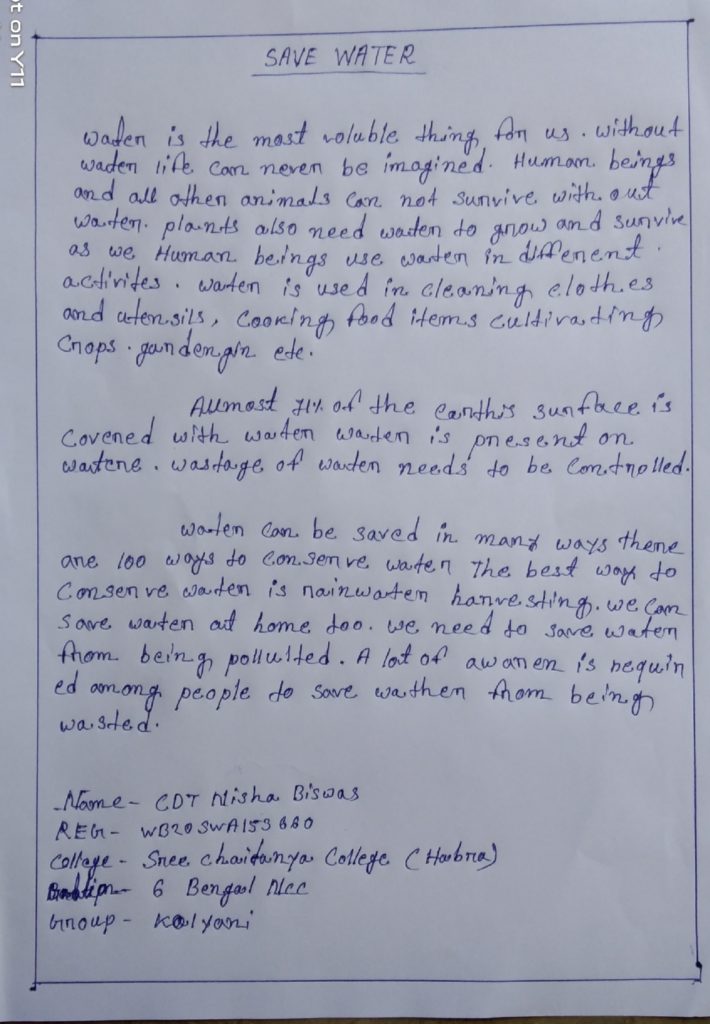 ot on Y11
SAVE WATER
water is the most voluble thing for us. without
water life can never be imagined. Human beings
and all other animals can not survive with out
water. plants also need water to grow and survive
as we Human beings use water in different.
activites. water is used in cleaning clothes
and utensils, Cooking food items cultivating
Crops. gardengin etc.
Allmost 71% of the earthis surface is
Covered with water water is present on
watere. wastage of water needs to be Controlled.
water can be saved in many ways there
are 100 ways to conserve water The best way to
Conserve water is rainwater harvesting. we can
save water at home too. we need to save water
from being pollutted. A lot of awaren is requir
ed among people to save wather from being
wasted.
Name - CDT Nisha Biswas
REG - WB20SWA153
College - Sree Chaitanya College (Habra)
6 Bengal NCC
Group - Kalyani